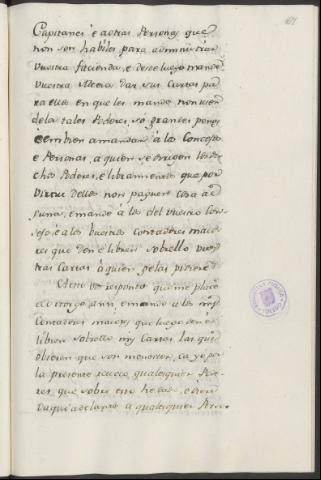 61
Capitanes é á otras Personas que
non son habiles para administrar
vuestra facienda, é desde luego mande
Vuestra Alteza dar sus Cartas pa
ra ellos en que les mande non usen
de los tales Poderes, só grandes penas
é embien amandar á los Concejos
é Personas, á quien se dirigen los di
chos Poderes, é libramientos que por
virtud dellos non paguen cosa al
guna, é mande á los del vuestro Con
sejo é á los vuestros contadores maio
res que den é libren sobrello vues
tras Cartas á quien gelas pidiere
á esto vos respondo que me place
de aqui é mando á los mis
Contadores maiores que luego den é
libren sobrello mis Cartas, las que
obieren que son menester, ca yo por
la presente revoco qualesquier Pode
res que sobre esto he dado, é diere
Daqui adelante á qualesquier Per